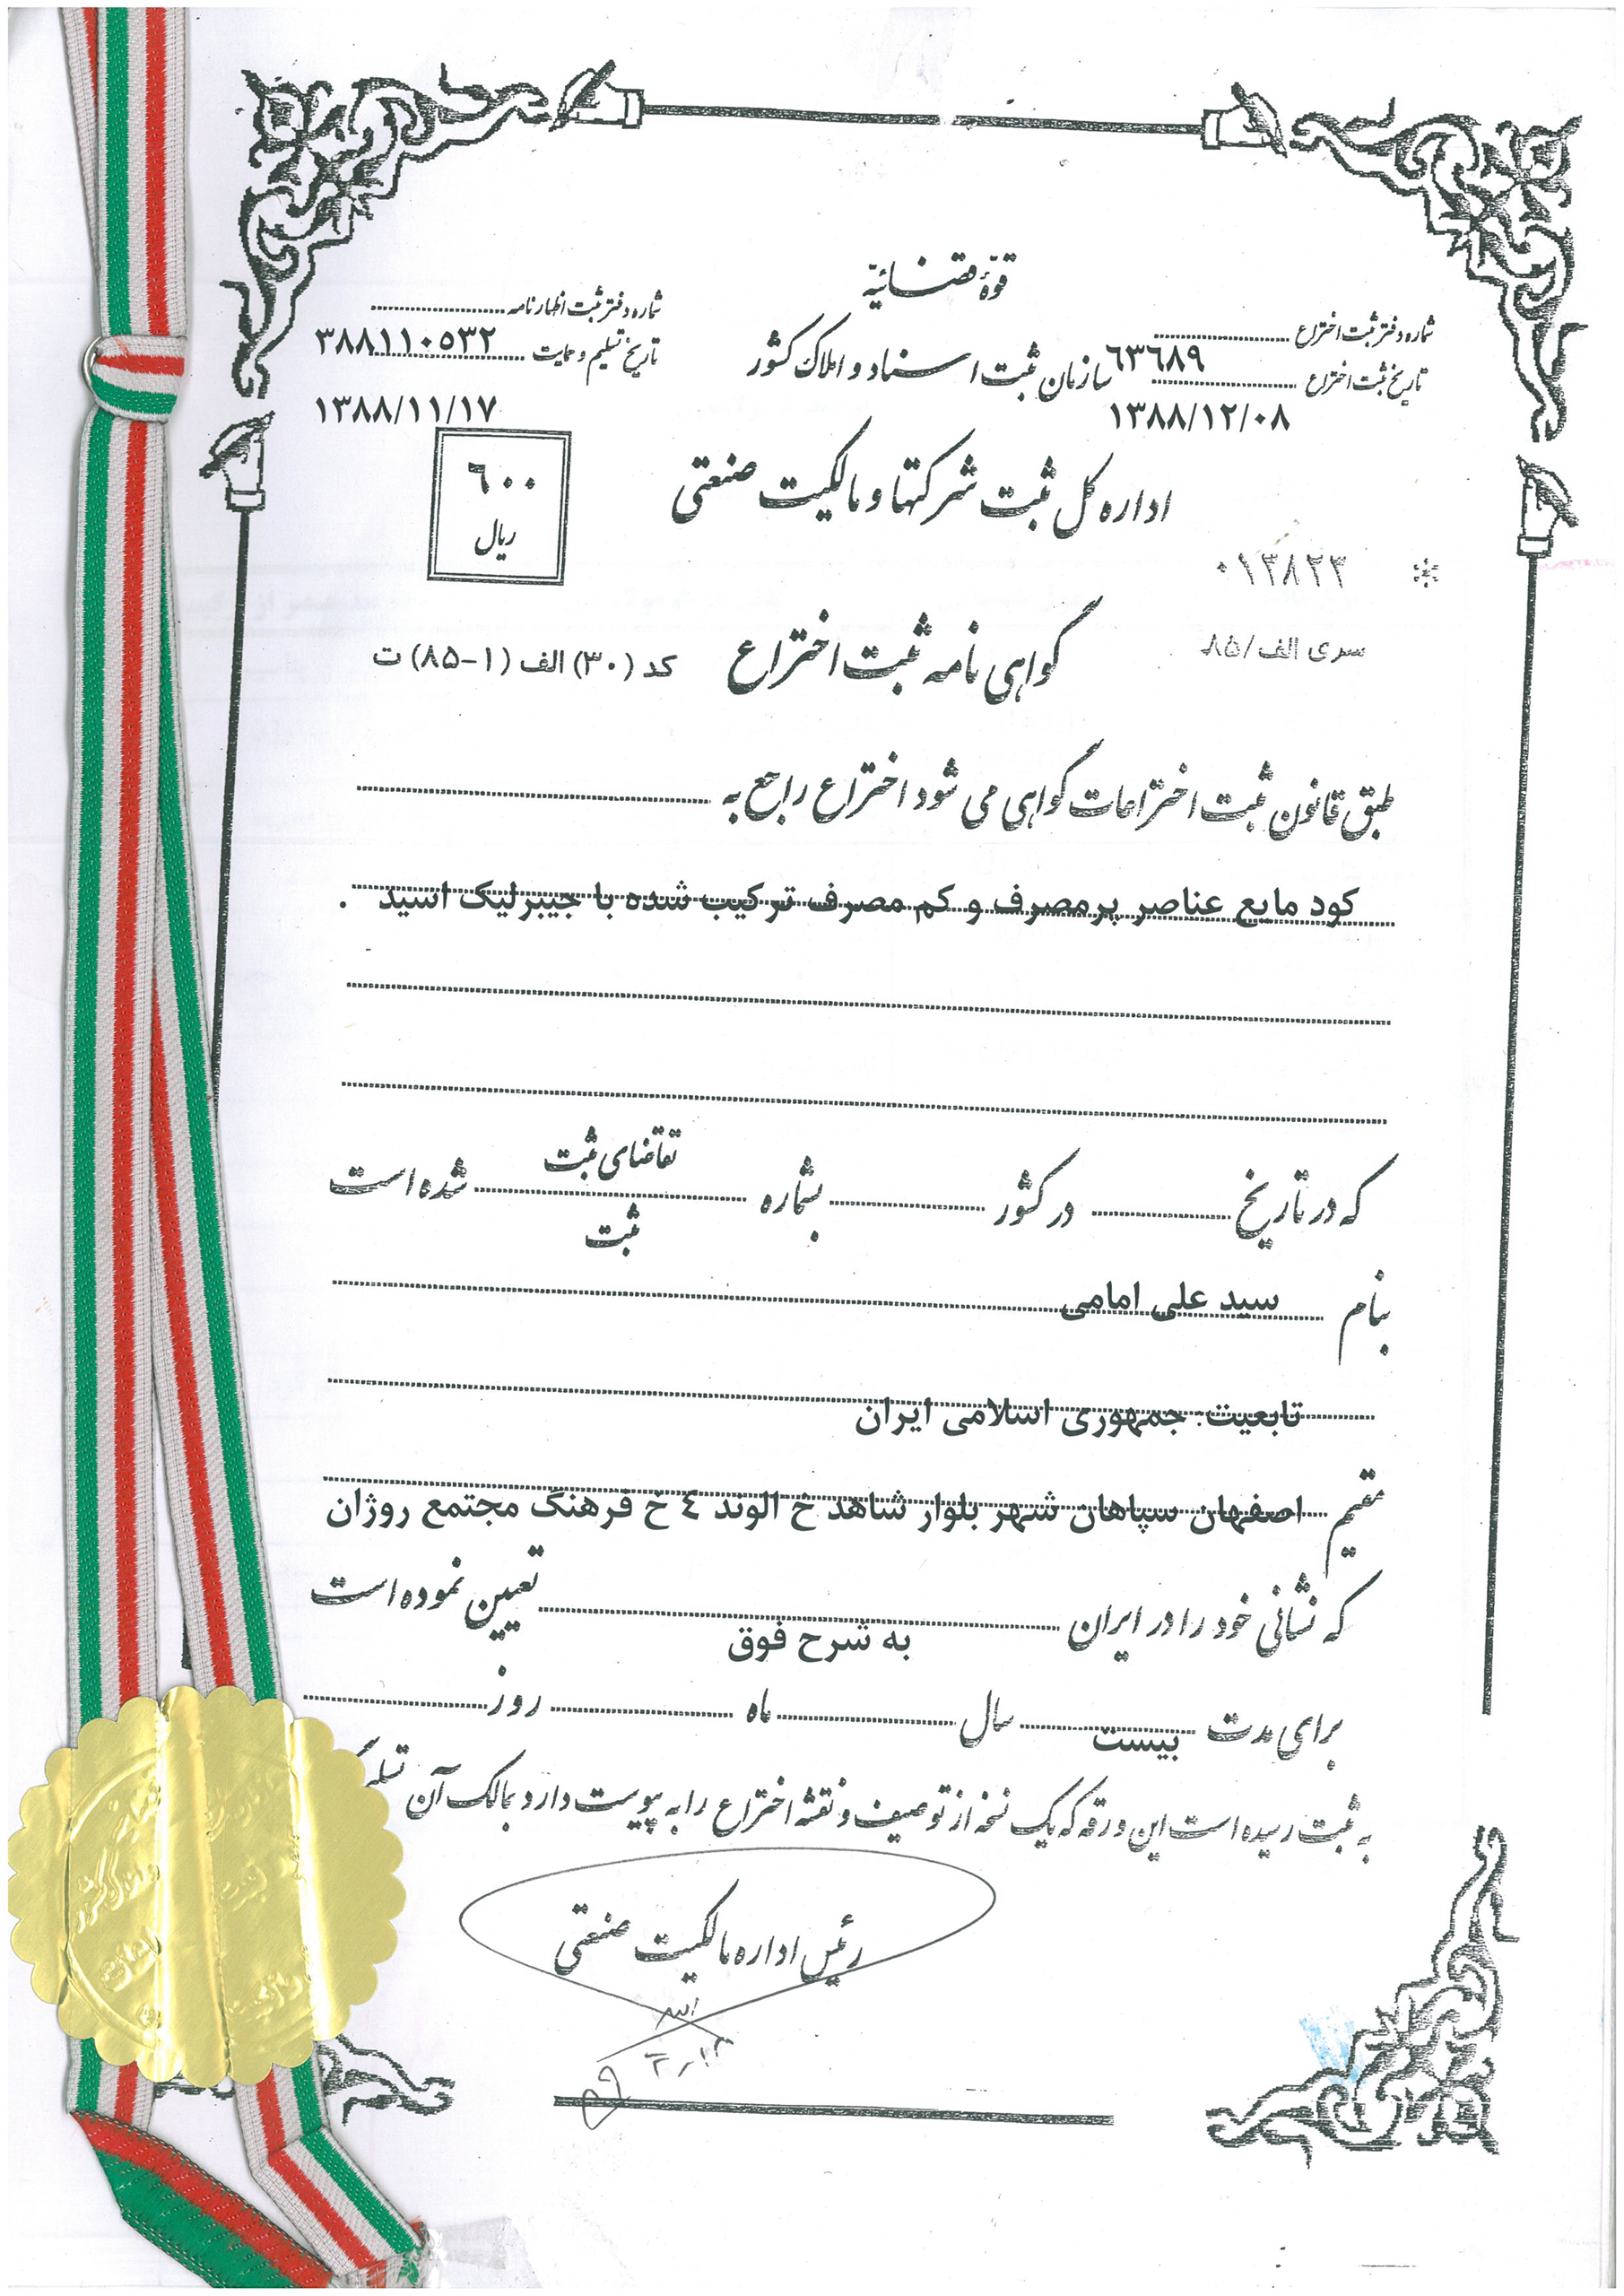 قوّهٔ قضائیّه
شماره دفتر ثبت اختراع
۶۳۶۸۹
تاریخ ثبت اختراع
۱۳۸۸/۱۲/۰۸
سازمان ثبت اسناد و املاک کشور
شماره دفتر ثبت اظهارنامه
۳۸۸۱۱۰۵۳۲
تاریخ تسلیم و حمایت
۱۳۸۸/۱۱/۱۷
اداره کل ثبت شرکتها و مالکیت صنعتی
۶۰۰
ریال
۰۱۳۸۲۳ *
سری الف/۸۵
گواهی نامه ثبت اختراع
کد (۳۰) الف (۱-۸۵) ت
طبق قانون ثبت اختراعات گواهی می شود اختراع راجع به
کود مایع عناصر پرمصرف و کم مصرف ترکیب شده با جیبرلیک اسید .
که در تاریخ در کشور بشماره تقاضای ثبت شده است
ثبت
بنام سید علی امامی
تابعیت: جمهوری اسلامی ایران
مقیم اصفهان سپاهان شهر بلوار شاهد خ الوند ٤ خ فرهنگ مجتمع روژان
که نشانی خود را در ایران به شرح فوق تعیین نموده است
برای مدت بیست سال ماه روز
به ثبت رسیده است این ورقه که یک نسخه از توصیف و نقشه اختراع را به پیوست دارد بمالک آن
رئیس اداره مالکیت صنعتی